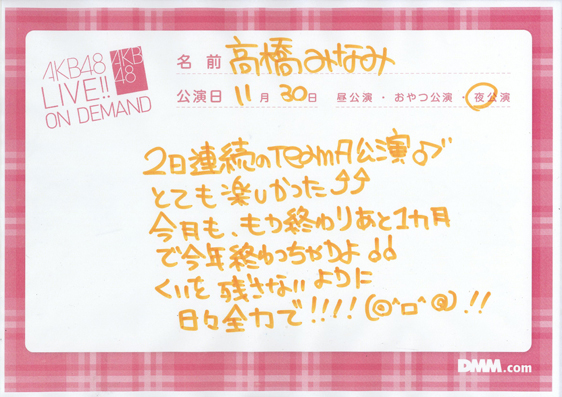 AKB48
LIVE!!
ON DEMAND
AKB
48
名前 高橋みなみ
公演日 11月30日 昼公演・おやつ公演・夜公演
2日連続のTeamA公演♪
とても楽しかった⤴⤴
今月も、もう終わりあと1カ月
で今年終わっちゃうよ♩♩
くいを残さないように
日々全力で!!!!(@^ロ^@)!!
DMM.com